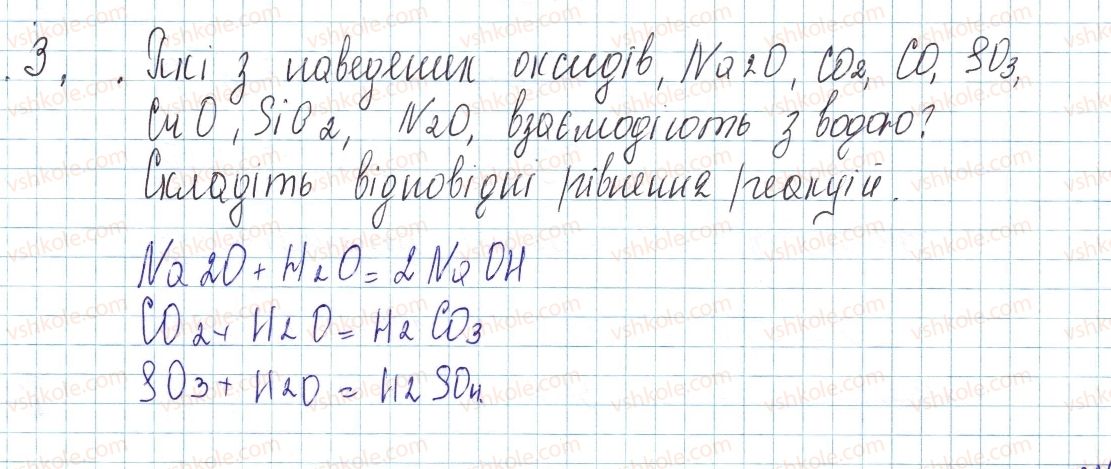 3. Які з наведених оксидів, Na2O, CO2, CO, SO3,
CuO, SiO2, N2O, взаємодіють з водою?
Складіть відповідні рівняння реакцій.
Na2O + H2O = 2NaOH
CO2 + H2O = H2CO3
SO3 + H2O = H2SO4